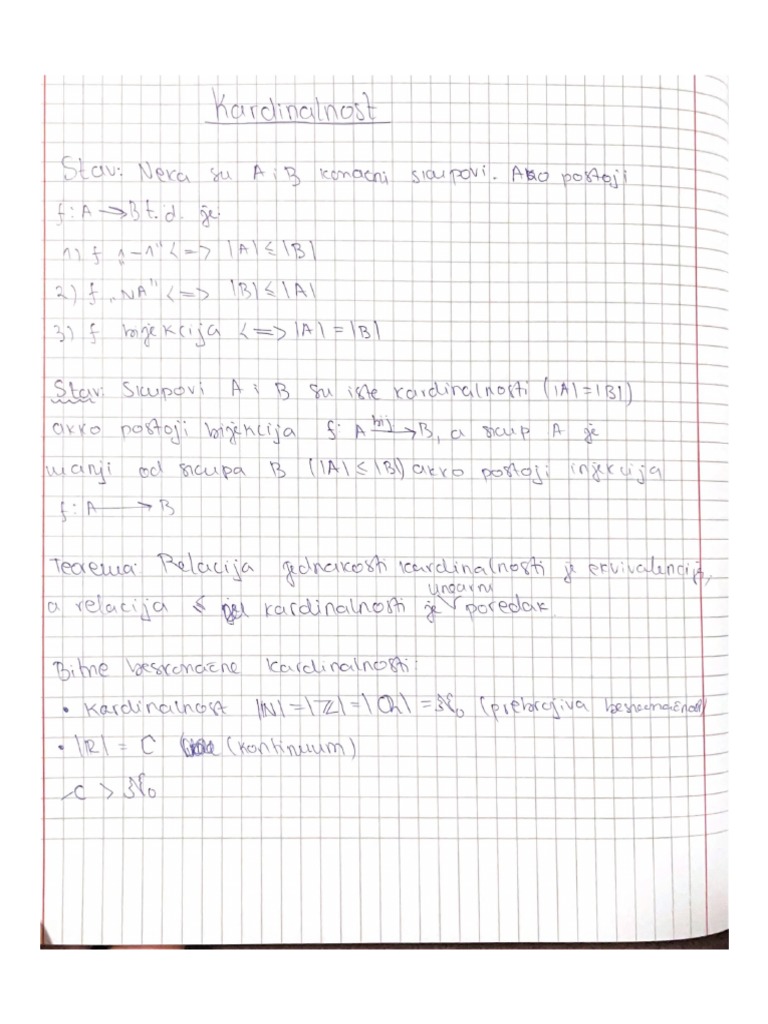 Kardinalnost
Stav: Neka su A i B konačni skupovi. Ako postoji
f: A → B t.d. je:
1) f „1-1" <=> |A| ≤ |B|
2) f „NA" <=> |B| ≤ |A|
3) f bijekcija <=> |A| = |B|
Stav: Skupovi A i B su iste kardinalnosti (|A|=|B|)
akko postoji bijekcija f: A bij→ B, a skup A je
manji od skupa B (|A| ≤ |B|) akko postoji injekcija
f: A → B
Teorema: Relacija jednakosti kardinalnosti je ekvivalencija,
a relacija ≤ kardinalnosti je linearni poredak.
Bitne beskonačne kardinalnosti:
• Kardinalnost |N| = |Z| = |Q| = ℵ₀ (prebrojiva beskonačnost)
• |R| = C (kontinuum)
C > ℵ₀